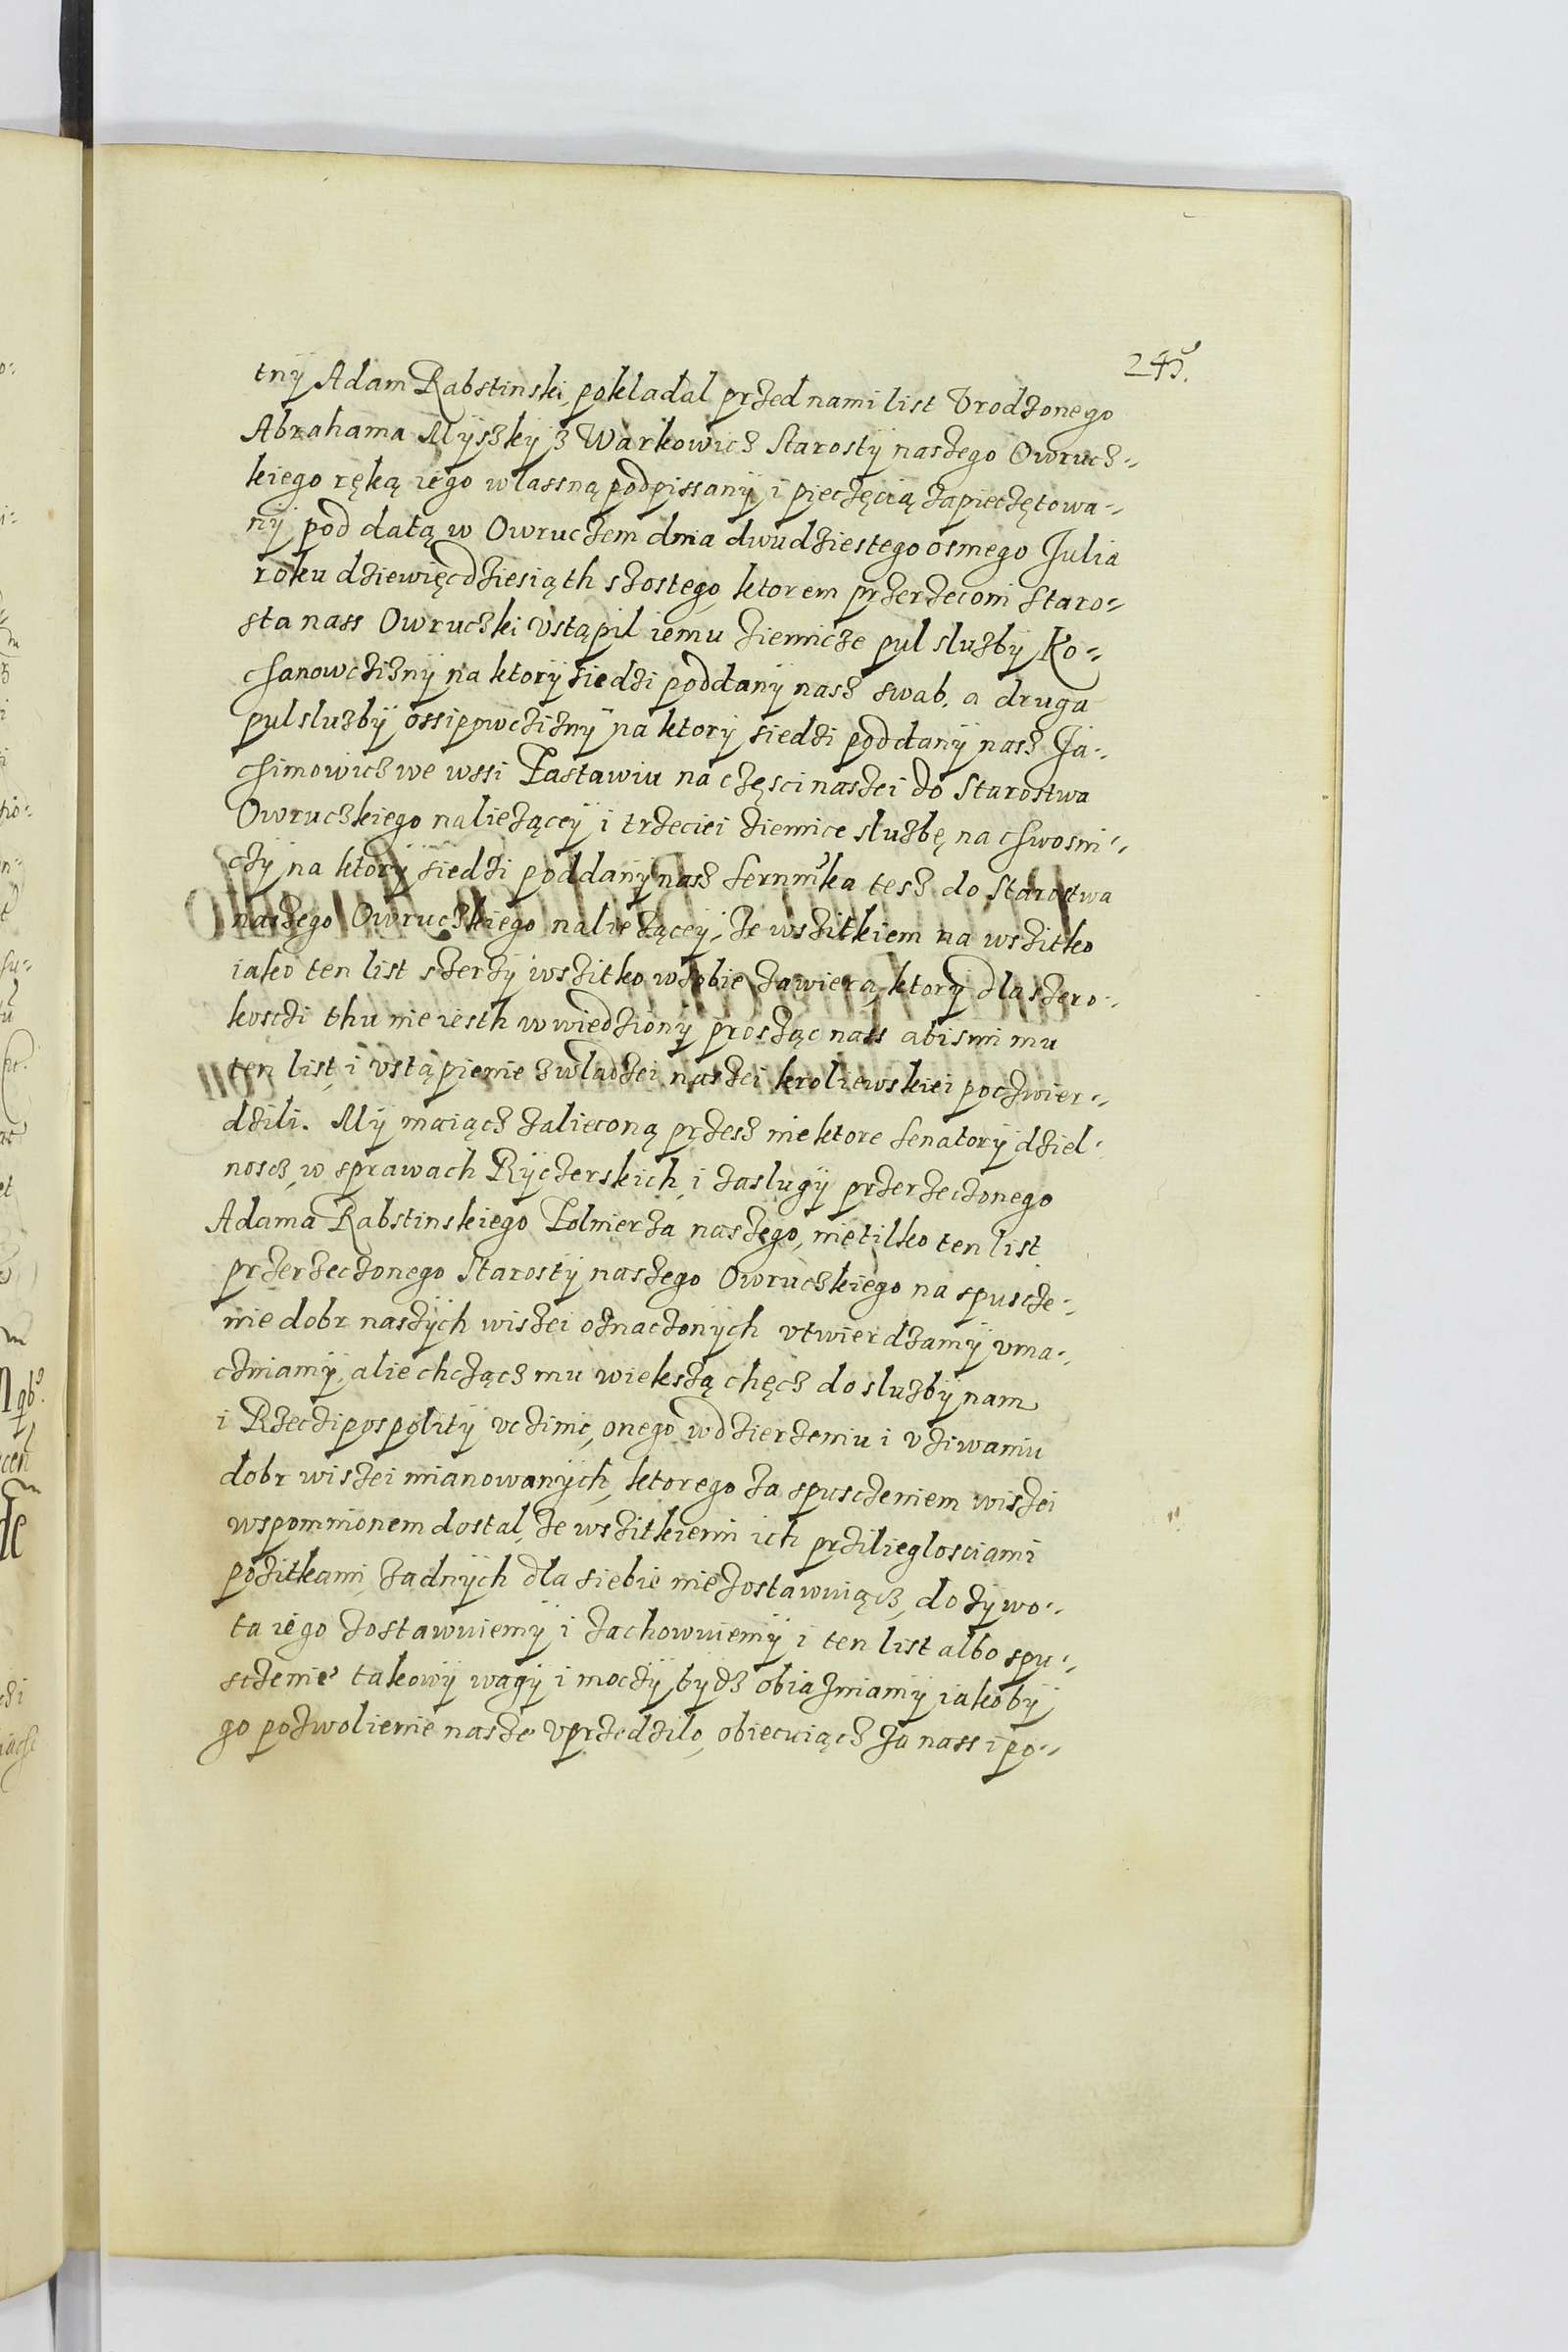 245.
tny Adam Rabstinski, pokladal przed nami list Vrodzonego
Abrahama Myszky z Warkowicz Starosty naszego Owrucz-
kiego ręką iego wlassną podpissany i pieczęcią zapieczętowa-
ny pod datą w Owruczem dnia dwudziestego osmego Julia
roku dziewięcdziesiąth szostego, ktorem przerzeconi Staro-
sta nass Owruczki vstąpil iemu ziemicze pul służby Ko-
chanowczizny na ktory siedzi poddany nasz swab. a druga
pul służby ossipowczizny na ktory siedzi poddany nasz Ja-
chimowicz we wssi Zastawiu na częsci naszei do Starostwa
Owruczkiego należącey i trzeciei ziemice służbę na chwosni-
czy na ktory siedzi poddany nasz tesz do Starostwa
naszego Owruczkiego należącey, ze wszitkiem na wszitko
iako ten list szerzy wszitko w sobie zawiera, ktory dla szero-
koszczi thu nie iesth w wiedziony prosząc nass abismi mu
ten list i vstąpienie z wladzei naszei kroliewskiei poczwier-
dzili. My maiącz zalieconą przesz niektore Senatory dziel-
noscz w sprawach Ryczerskich, i zaslugy przerzeczonego
Adama Rabstinskiego Zolnierza naszego, nietilko ten list
przerzeczonego Starosty naszego Owruczkiego na spuscze-
nie dobr naszych wiszei oznaczonych vtwierdzamy vma-
czniamy, alie chcząc mu wiekszą chęcz do służby nam
i Rzeczipospolity vczinic, onego w dzierzeniu i vziwaniu
dobr wiszei mianowanych, ktorego za spusczeniem wiszei
wspomnionem dostal, ze wszitkiemi ich prziliegloscіami
pozitkami, zadnych dla siebie nie zostawuiącz, do żywo-
ta iego zostawuiemy i zachowuiemy i ten list albo spu-
sczenie takowy wagy i moczy bydz obiazniamy iakoby
go pozwolienie nasze vprzedzilo, obiecuiącz za nass i po-